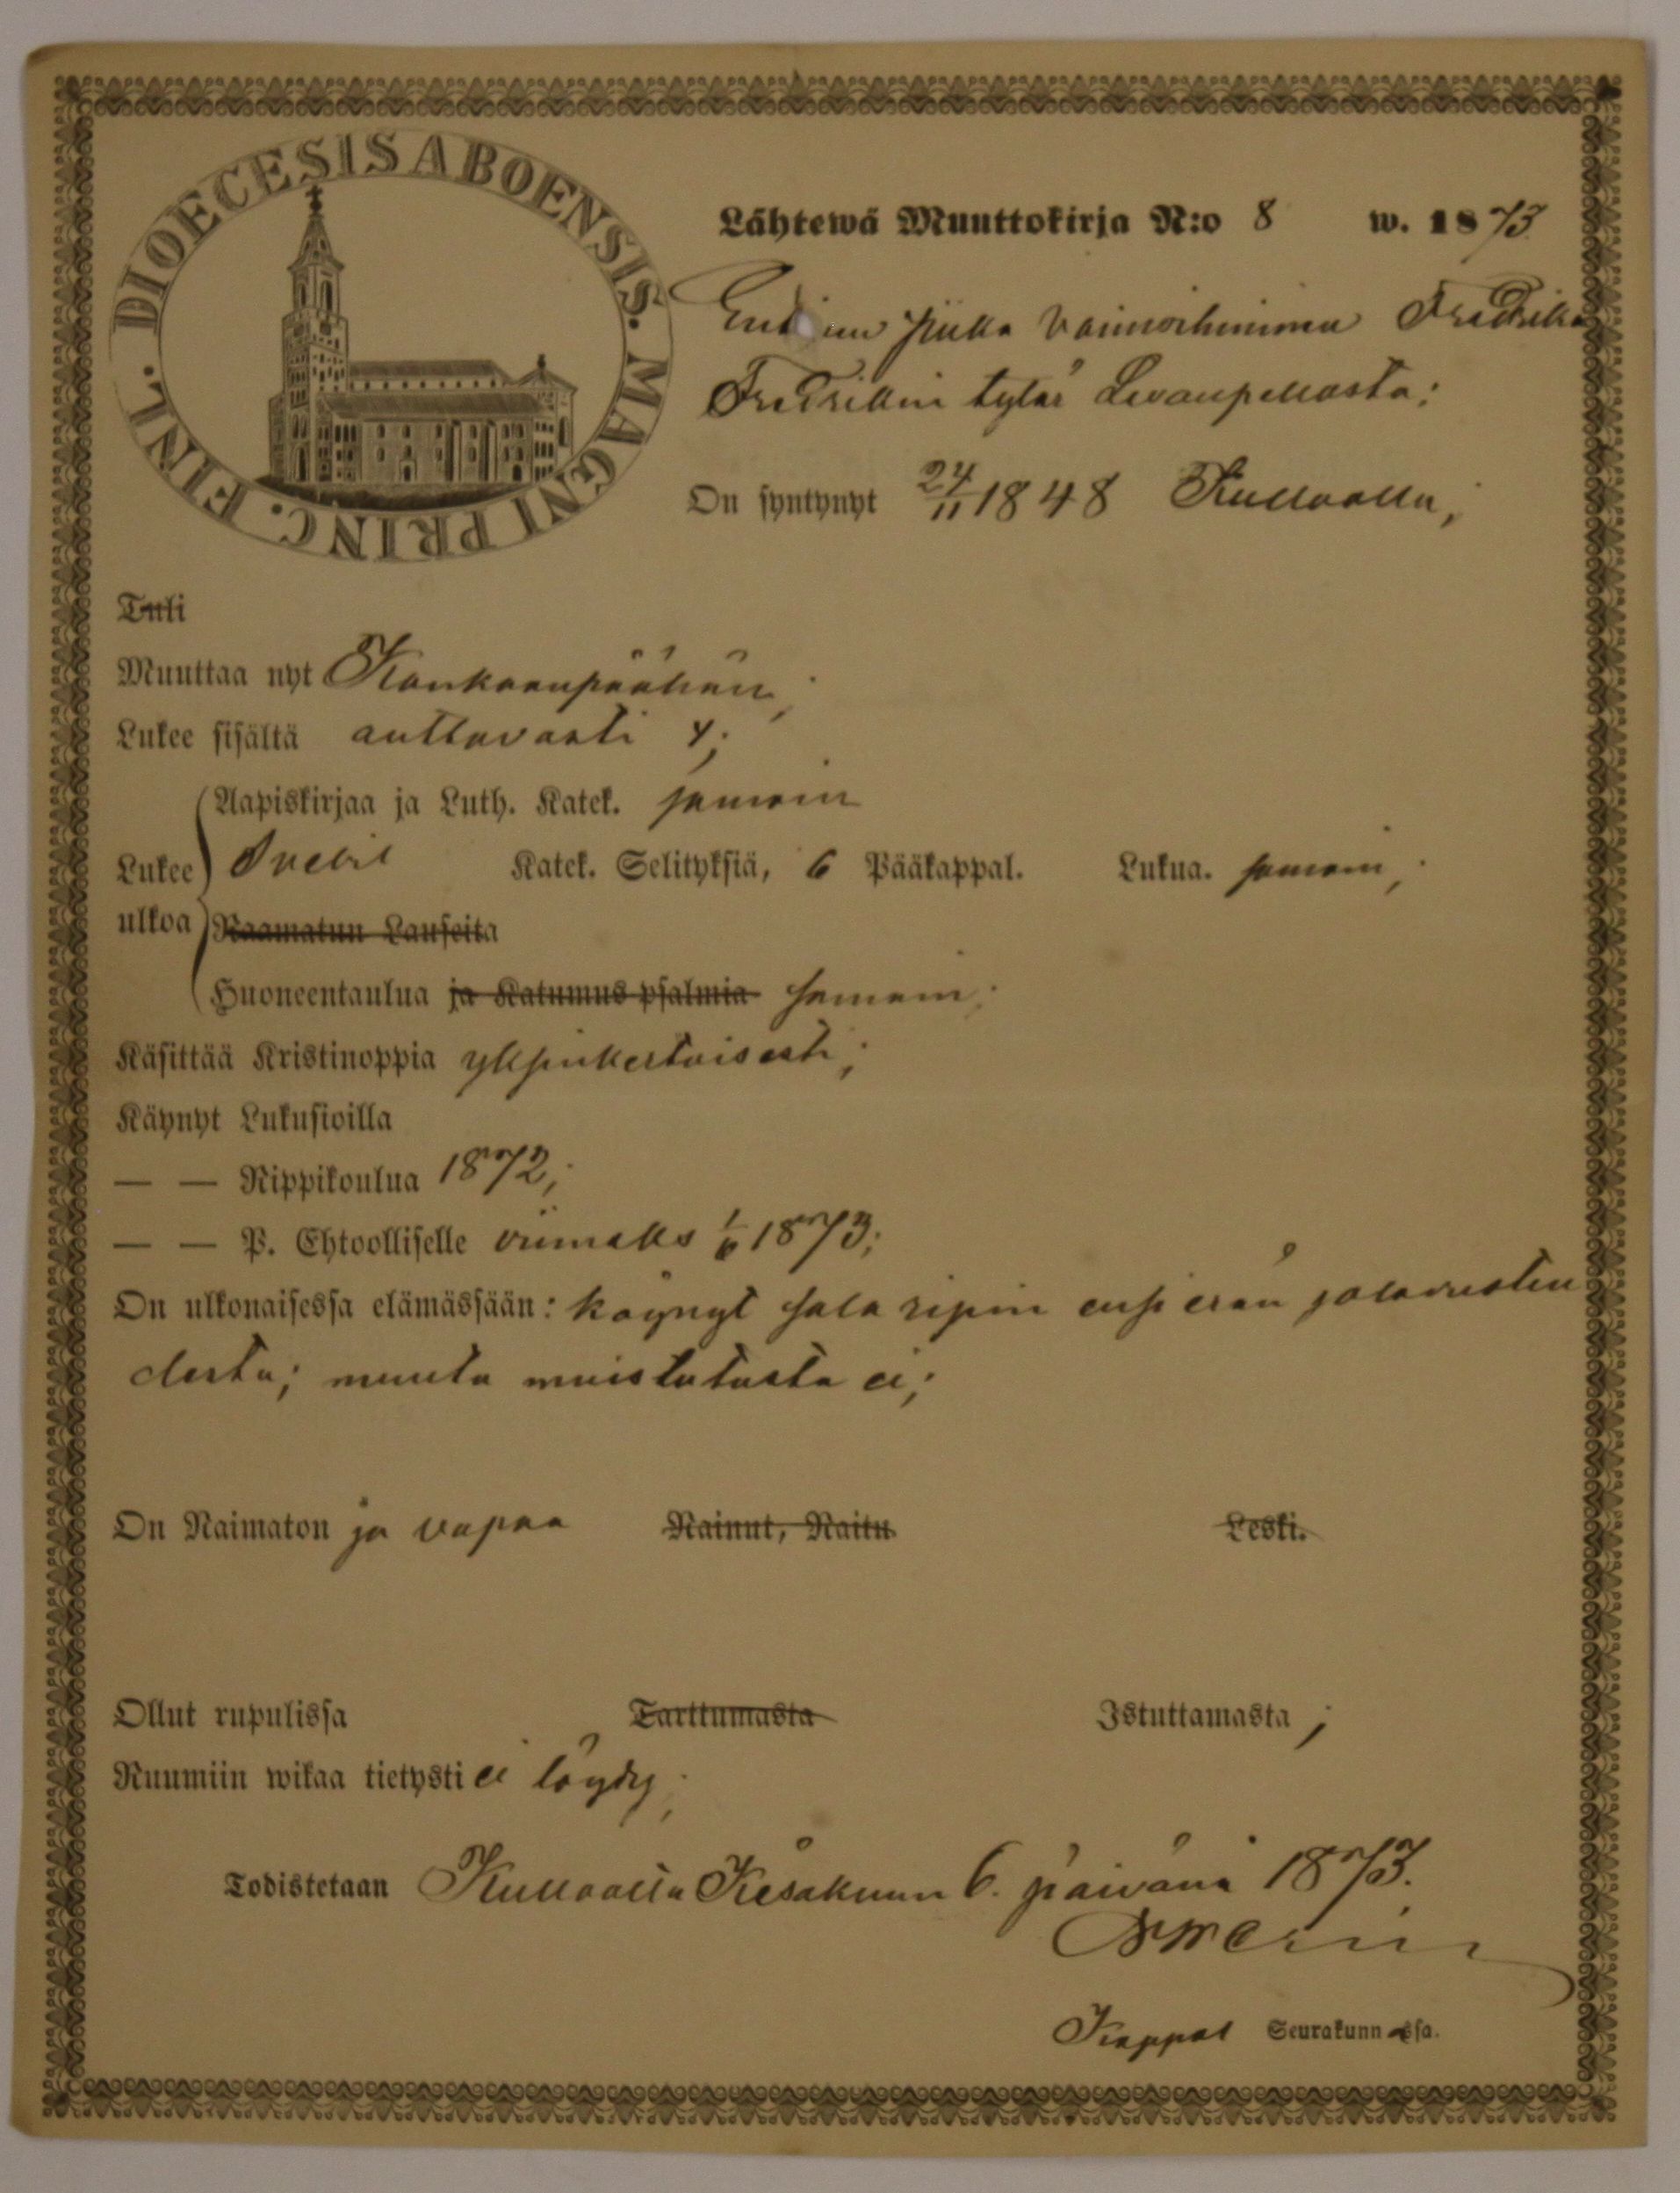 DIOECESIS ABOENSIS. MAGNI PRINC. FINL.
Lähtewä Muuttokirja N:o 8 w. 1873
piika vaimoihminen Fredrika
Fredrikin tytär Levanpellosta;
On syntynyt 24/11 1848 Kullaalla;
Tuli
Muuttaa nyt Kankaanpäähän;
Lukee sisältä auttavasti 4;
Aapiskirjaa ja Luth. Katek. samoin
Lukee Svebil Katek. Selityksiä, 6 Pääkappal. Lukua. samoin;
ulkoa Raamatun Lauseita
Huoneentaulua ja Katumus psalmia samoin;
Käsittää Kristinoppia yksinkertaisesti;
Käynyt Lukusioilla
— — Rippikoulua 1872;
— — P. Ehtoolliselle viimeks 1/6 1873;
On ulkonaisessa elämässään: käynyt sala ripin ensi erän salavuoteu
desta; muuta muistutusta ei;
On Naimaton ja vapaa Nainut, Naitu Leski.
Ollut rupulissa Tarttumasta Istuttamasta;
Ruumiin wikaa tietysti ei löydy;
Todistetaan Kullaalla Kesäkuun 6. päivänä 1873.
Kappal Seurakunnassa.